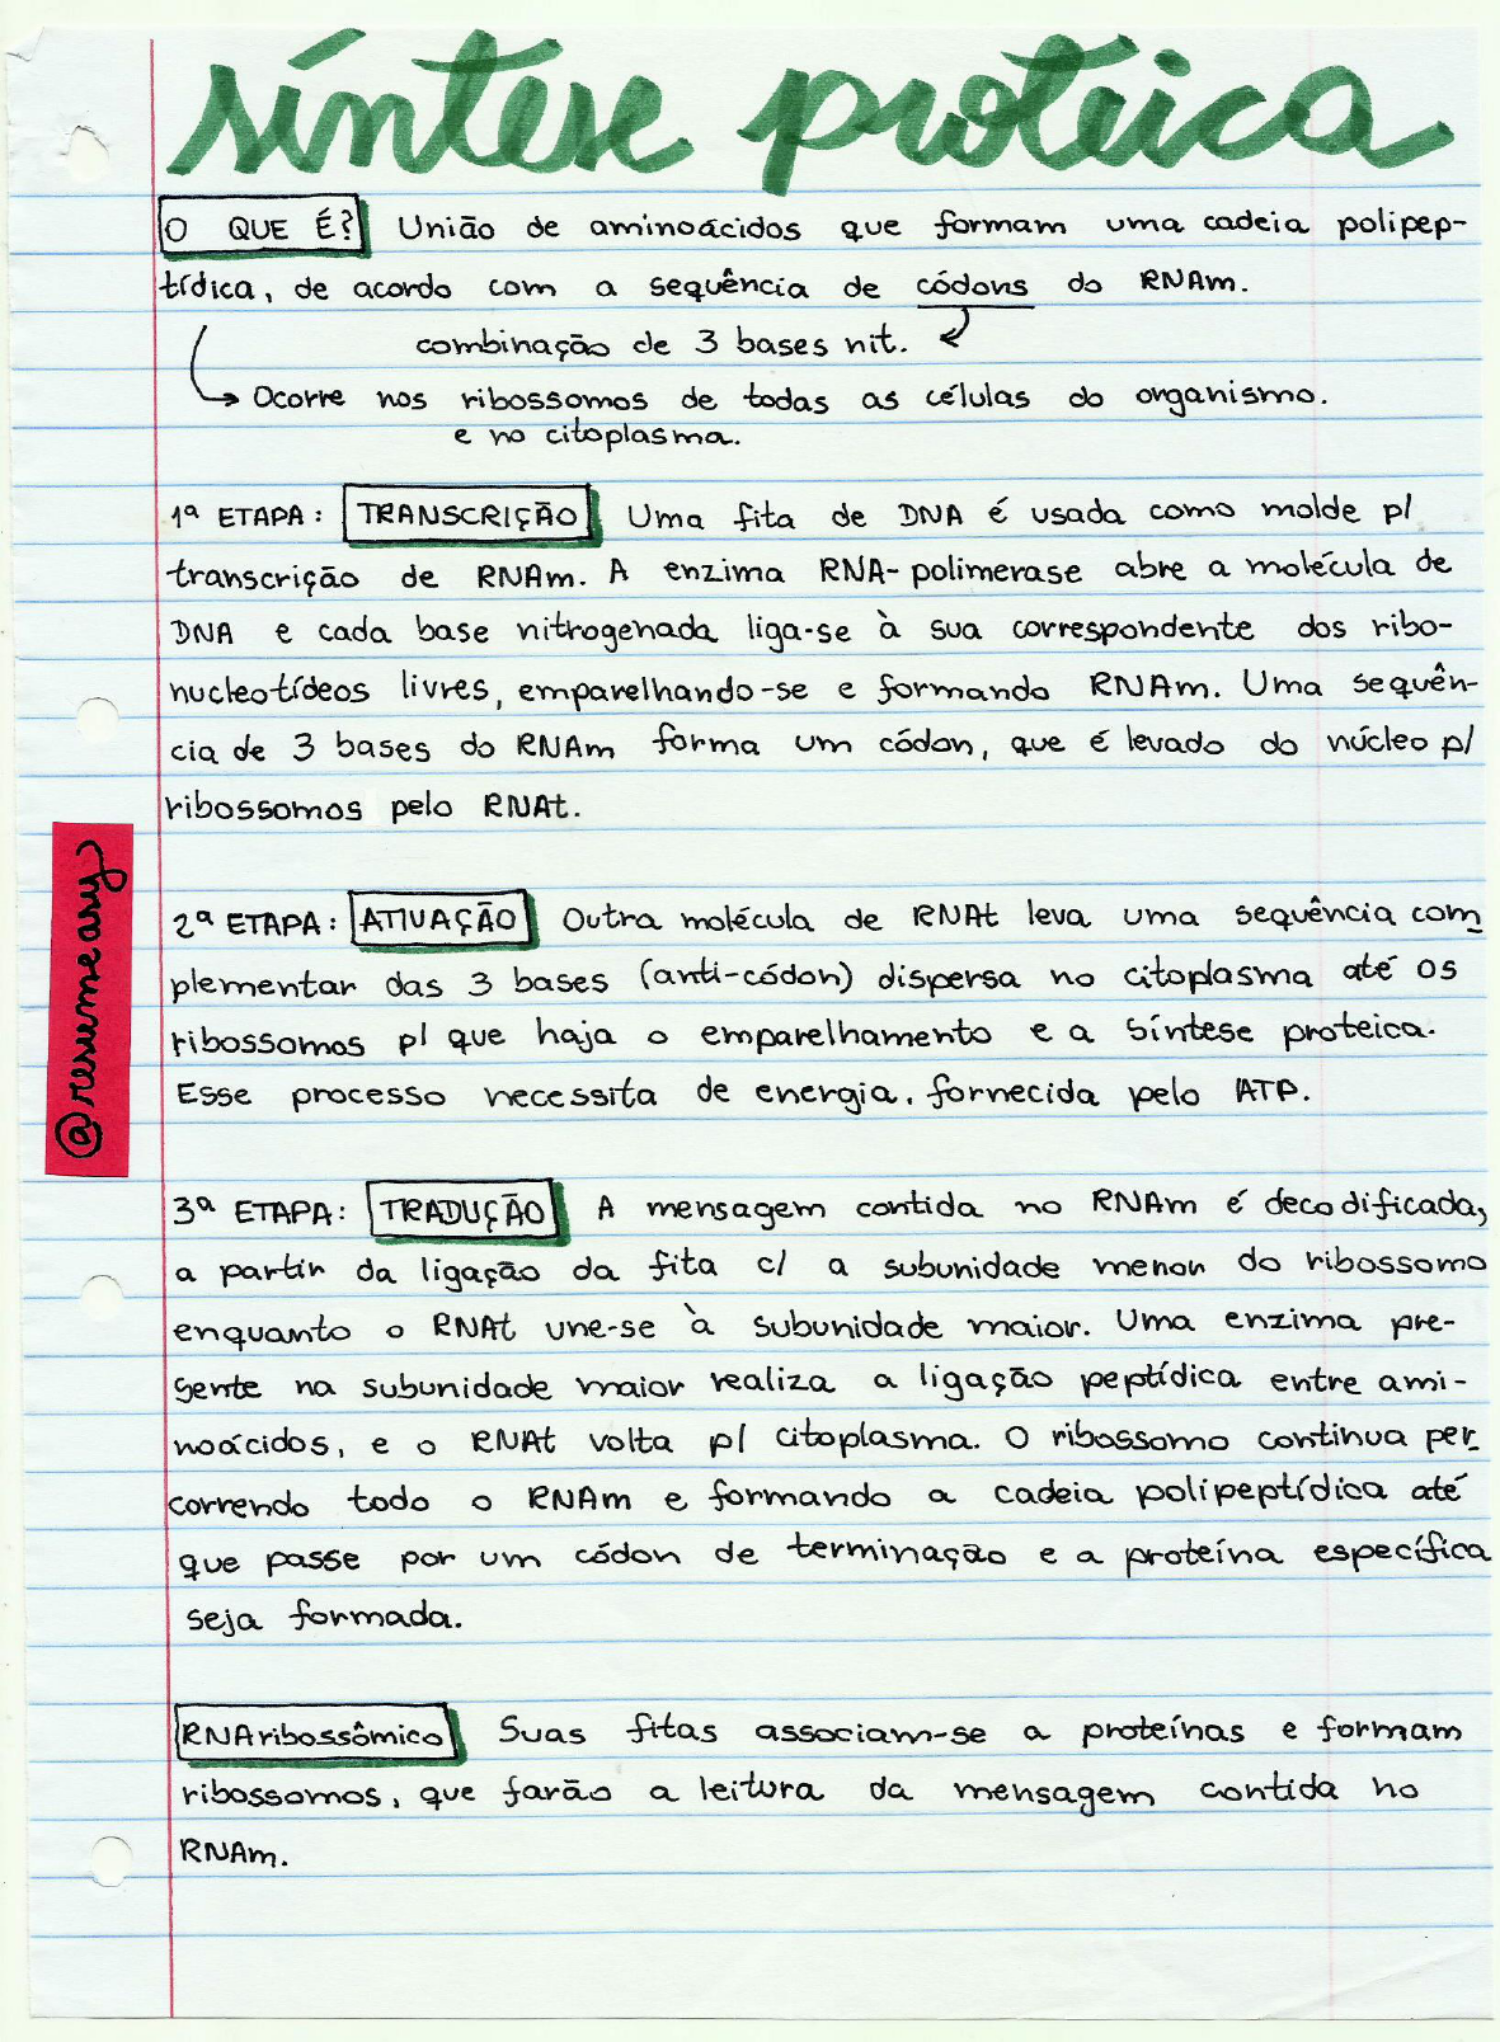 síntese proteica
O QUE É? União de aminoácidos que formam uma cadeia polipep-
tídica, de acordo com a sequência de códons do RNAm.
combinação de 3 bases nit.
Ocorre nos ribossomos de todas as células do organismo.
e no citoplasma.
1ª ETAPA: TRANSCRIÇÃO Uma fita de DNA é usada como molde p/
transcrição de RNAm. A enzima RNA-polimerase abre a molécula de
DNA e cada base nitrogenada liga-se à sua correspondente dos ribo-
nucleotídeos livres, emparelhando-se e formando RNAm. Uma sequên-
cia de 3 bases do RNAm forma um códon, que é levado do núcleo p/
ribossomos pelo RNAt.
@resumeasy
2ª ETAPA: ATIVAÇÃO Outra molécula de RNAt leva uma sequência com
plementar das 3 bases (anti-códon) dispersa no citoplasma até os
ribossomos p/ que haja o emparelhamento e a síntese proteica.
Esse processo necessita de energia, fornecida pelo ATP.
3ª ETAPA: TRADUÇÃO A mensagem contida no RNAm é decodificada,
a partir da ligação da fita c/ a subunidade menor do ribossomo
enquanto o RNAt une-se à subunidade maior. Uma enzima pre-
sente na subunidade maior realiza a ligação peptídica entre ami-
noácidos, e o RNAt volta p/ citoplasma. O ribossomo continua per
correndo todo o RNAm e formando a cadeia polipeptídica até
que passe por um códon de terminação e a proteína específica
seja formada.
RNAribossômico Suas fitas associam-se a proteínas e formam
ribossomos, que farão a leitura da mensagem contida no
RNAm.